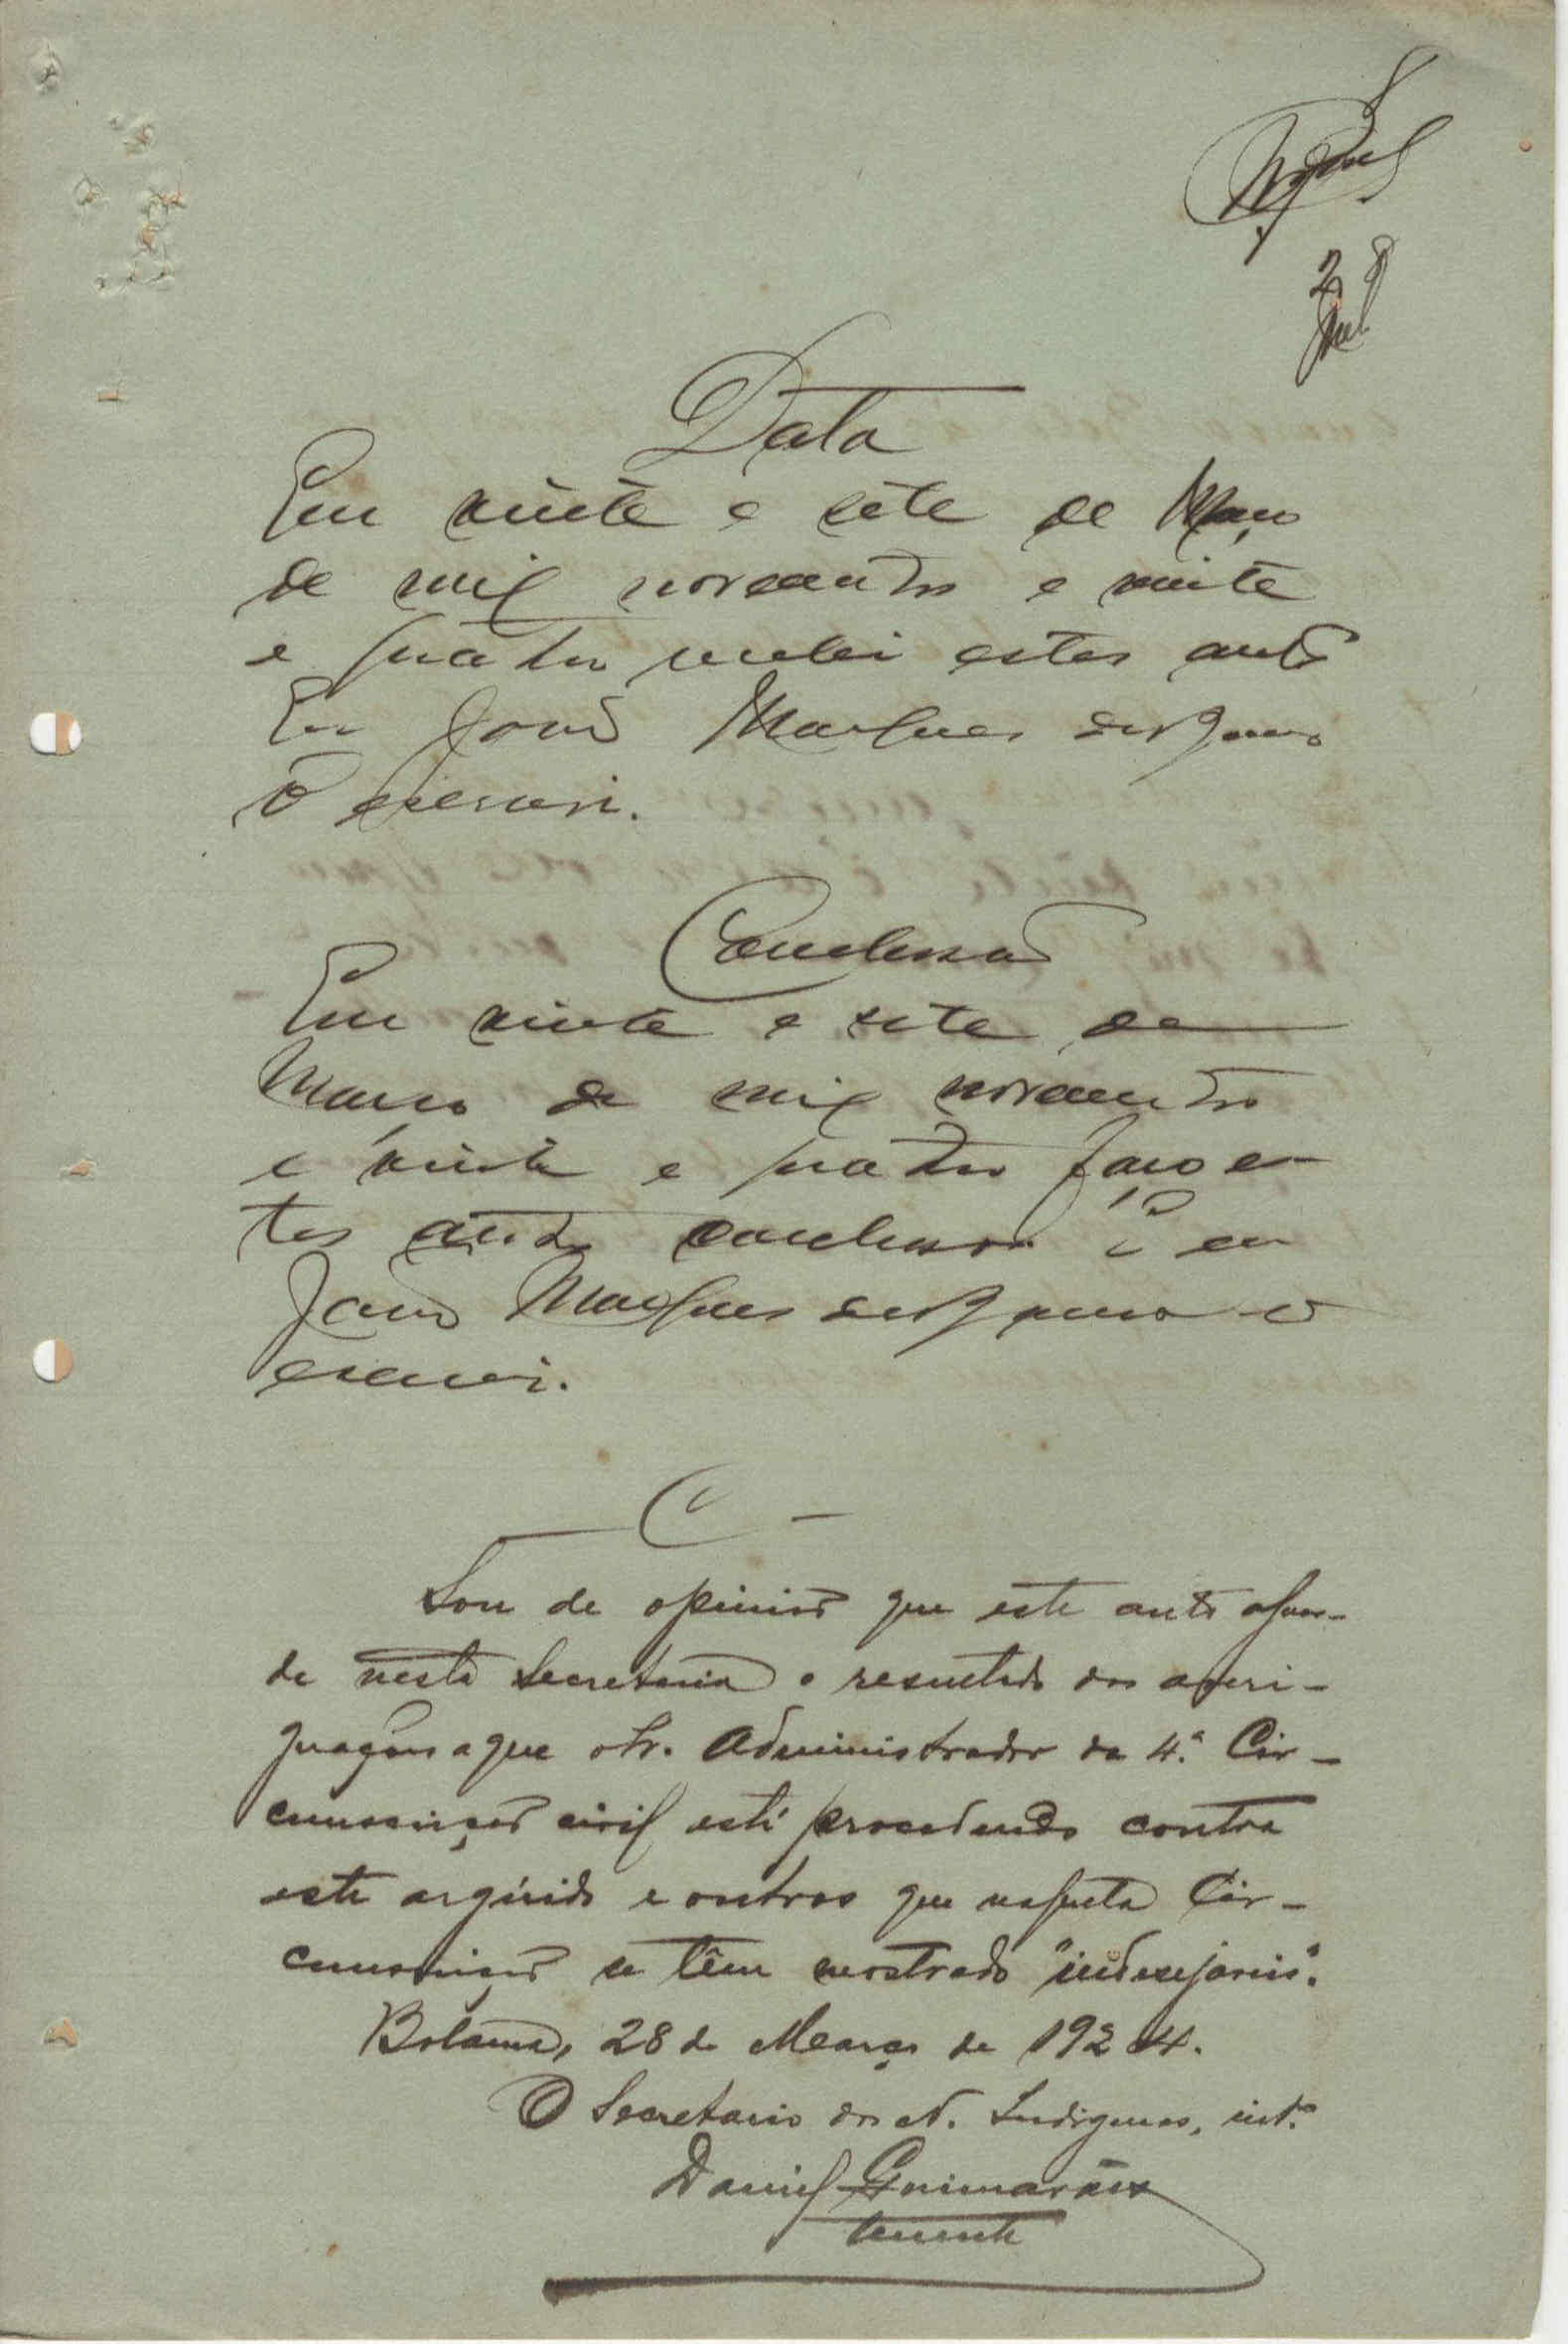 28
Data
Em vinte e sete de Março
de mil novecentos e vinte
e quatro recebi estes autos
Eu João Marques
o escrevi.
Conclusão
Em vinte e sete de
Março de mil novecentos
e vinte e quatro faço es-
tes autos conclusos E eu
João Marques o
escrevi.
C
Sou de opinião que este auto aguar-
de nesta Secretaria o resultado das averi-
guações a que o Sr. Administrador da 4.ª Cir-
cunscrição civil está procedendo contra
este arguido e outros que naquela Cir-
cunscrição se têm mostrado "indesejaveis".
Bolama, 28 de Março de 1924.
O Secretario dos N. Indigenas, int.º
Daniel Guimarães
tenente